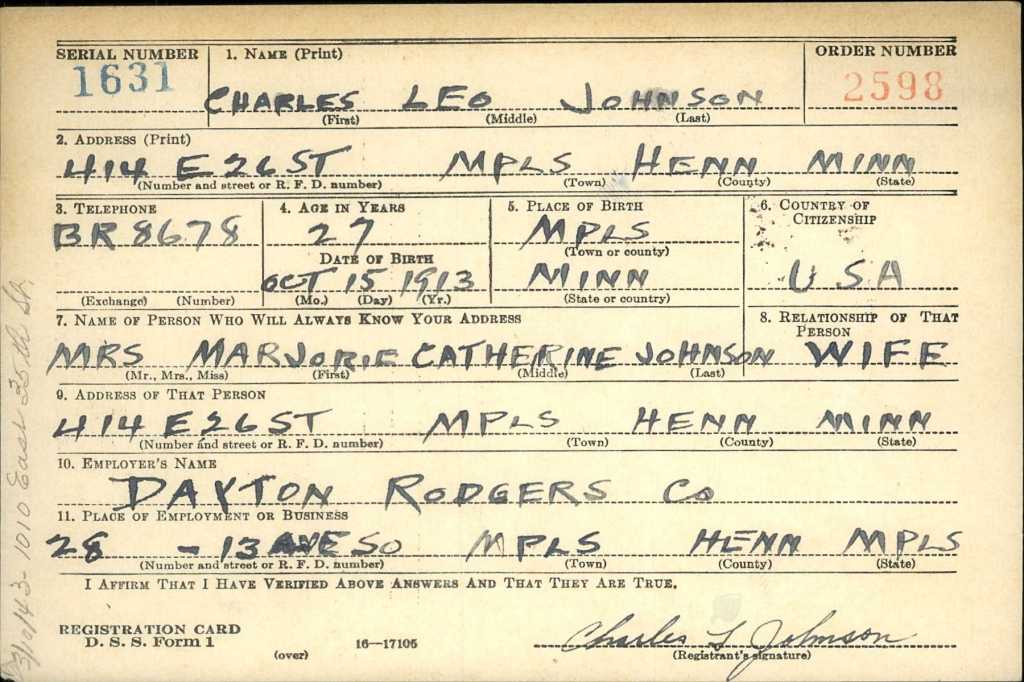 SERIAL NUMBER 1. NAME (Print) ORDER NUMBER
1631 CHARLES LEO JOHNSON 2598
(First) (Middle) (Last)
2. ADDRESS (Print)
414 E 26 ST MPLS HENN MINN
(Number and street or R. F. D. number) (Town) (County) (State)
3. TELEPHONE 4. AGE IN YEARS 5. PLACE OF BIRTH 6. COUNTRY OF CITIZENSHIP
BR 8678 27 MPLS
(Town or county)
DATE OF BIRTH
OCT 15 1913 MINN USA
(Exchange) (Number) (Mo.) (Day) (Yr.) (State or country)
7. NAME OF PERSON WHO WILL ALWAYS KNOW YOUR ADDRESS 8. RELATIONSHIP OF THAT PERSON
MRS MARJORIE CATHERINE JOHNSON WIFE
(Mr., Mrs., Miss) (First) (Middle) (Last)
9. ADDRESS OF THAT PERSON
414 E 26 ST MPLS HENN MINN
(Number and street or R. F. D. number) (Town) (County) (State)
10. EMPLOYER'S NAME
DAYTON RODGERS CO
11. PLACE OF EMPLOYMENT OR BUSINESS
28 - 13 AVE SO MPLS HENN MPLS
(Number and street or R. F. D. number) (Town) (County) (State)
I AFFIRM THAT I HAVE VERIFIED ABOVE ANSWERS AND THAT THEY ARE TRUE.
REGISTRATION CARD
D. S. S. Form 1 16—17105 Charles L Johnson
(over) (Registrant's signature)
3/10/43 - 1010 East 25th St.